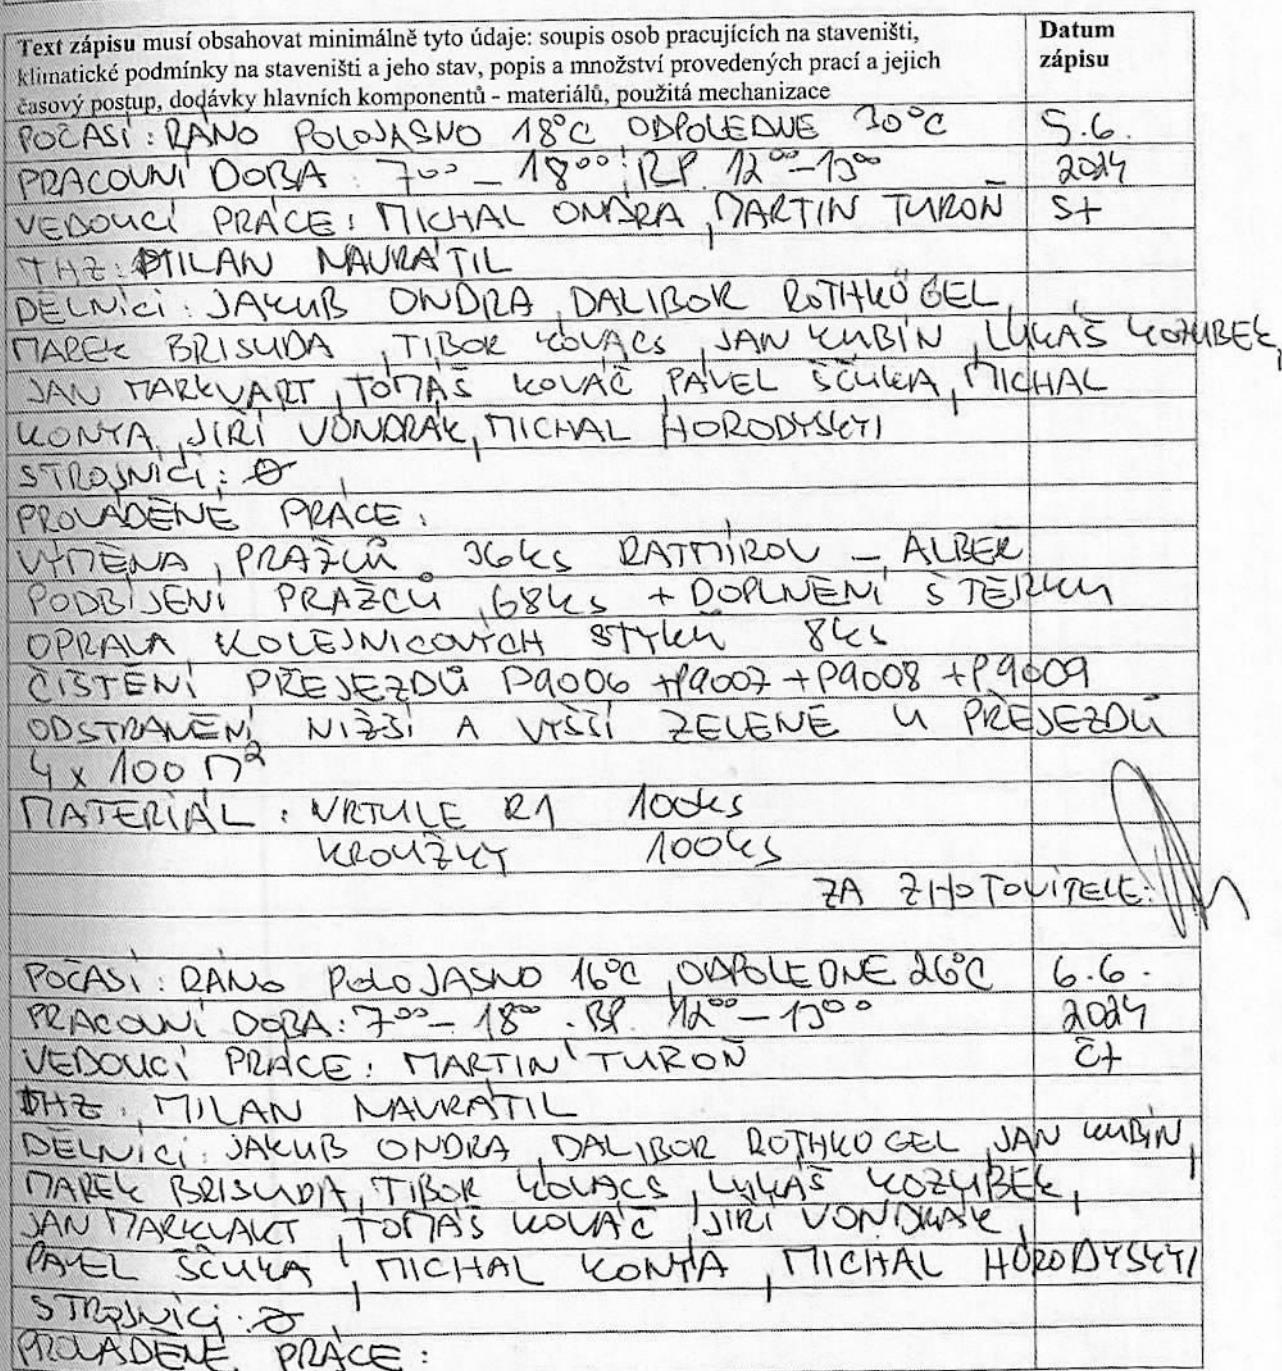 Text zápisu musí obsahovat minimálně tyto údaje: soupis osob pracujících na staveništi,
klimatické podmínky na staveništi a jeho stav, popis a množství provedených prací a jejich
časový postup, dodávky hlavních komponentů - materiálů, použitá mechanizace
Datum
zápisu
POČASÍ : RÁNO POLOJASNO 18°C ODPOLEDNE 30°C 5.6.
PRACOVNÍ DOBA : 7⁰⁰ - 18⁰⁰ ; BP. 12⁰⁰-13⁰⁰ 2024
VEDOUCÍ PRÁCE : MICHAL ONDRA , MARTIN TUROŇ St
THZ : MILAN NAVRÁTIL
DĚLNÍCI : JAKUB ONDRA , DALIBOR ROTHKÖGEL ,
MAREK BRISUDA , TIBOR KOVACS , JAN KUBÍN , LUKÁŠ KOZUBEK,
JAN MARKVART , TOMÁŠ KOVÁČ , PAVEL ŠČUKA , MICHAL
KONYA , JIŘÍ VONDRÁK , MICHAL HORODYSKYI
STROJNÍCI : Ø
PROVÁDĚNÉ PRÁCE :
VÝMĚNA PRAŽCŮ 36ks RATMÍROV - ALBEŘ
PODBÍJENÍ PRAŽCŮ 68ks + DOPLNĚNÍ ŠTĚRKU
OPRAVA KOLEJNICOVÝCH STYKŮ 8ks
ČIŠTĚNÍ PŘEJEZDŮ P9006 + P9007 + P9008 + P9009
ODSTRANĚNÍ NIŽŠÍ A VYŠŠÍ ZELENĚ U PŘEJEZDŮ
4 x 100 M²
MATERIÁL : VRTULE R1 100ks
KROUŽKY 100ks
ZA ZHOTOVITELE:
POČASÍ : RÁNO POLOJASNO 16°C , ODPOLEDNE 26°C 6.6.
PRACOVNÍ DOBA : 7⁰⁰ - 18⁰⁰ . BP. 12⁰⁰ - 13⁰⁰ 2024
VEDOUCÍ PRÁCE : MARTIN TUROŇ Čt
THZ : MILAN NAVRÁTIL
DĚLNÍCI : JAKUB ONDRA , DALIBOR ROTHKÖGEL , JAN KUBÍN ,
MAREK BRISUDA , TIBOR KOVACS , LUKÁŠ KOZUBEK ,
JAN MARKVART , TOMÁŠ KOVÁČ , JIŘÍ VONDRÁK ,
PAVEL ŠČUKA , MICHAL KONYA , MICHAL HORODYSKYI
STROJNÍCI : Ø
PROVÁDĚNÉ PRÁCE :